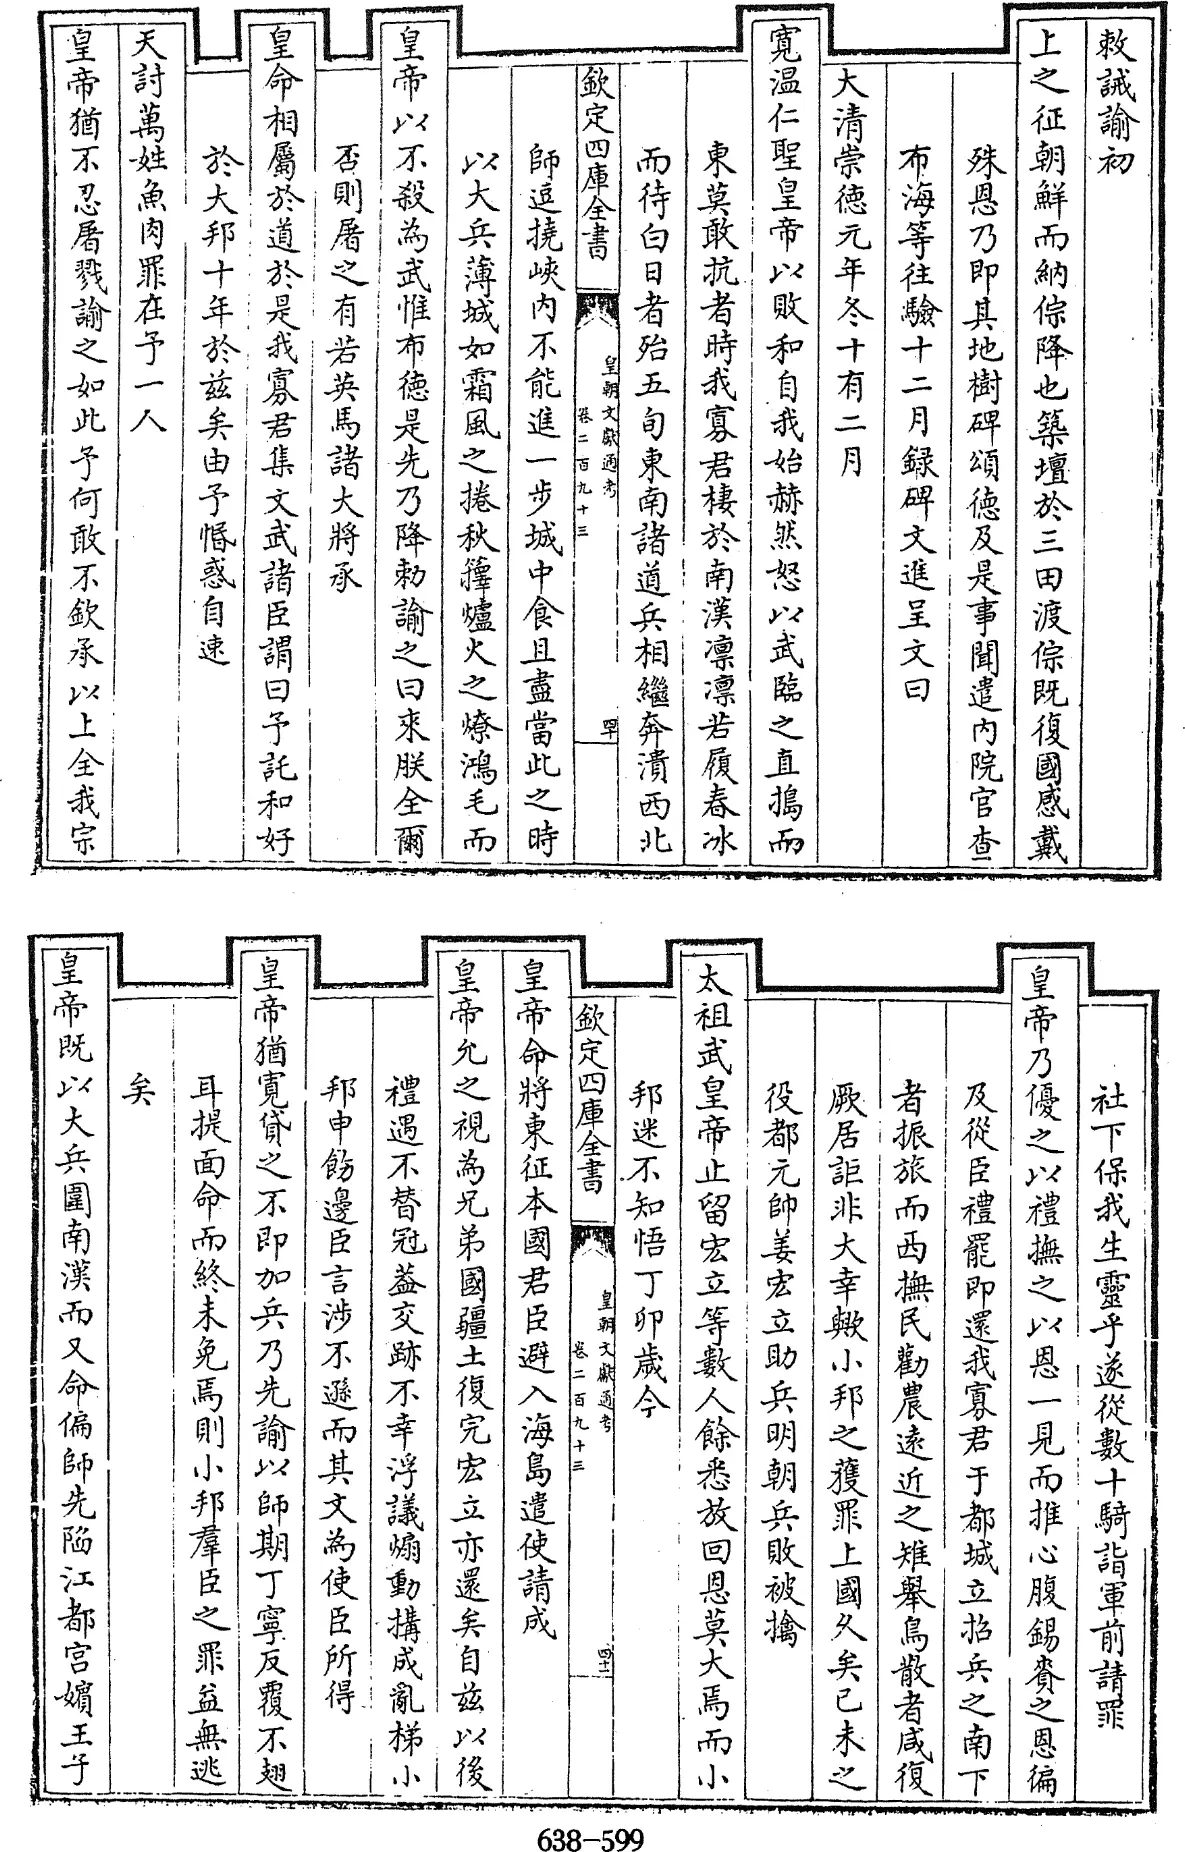 敕誡諭初
上之征朝鮮而納倧降也築壇於三田渡倧既復國感戴
殊恩乃即其地樹碑頌德及是事聞遣内院官查
布海等往驗十二月録碑文進呈文曰
大清崇德元年冬十有二月
寛温仁聖皇帝以敗和自我始赫然怒以武臨之直搗而
東莫敢抗者時我寡君棲於南漢凛凛若履春冰
而待白日者殆五旬東南諸道兵相繼奔潰西北
欽定四庫全書
皇朝文獻通考
卷二百九十三
四十
師逗撓峽内不能進一步城中食且盡當此之時
以大兵薄城如霜風之捲秋籜爐火之燎鴻毛而
皇帝以不殺為武惟布德是先乃降勅諭之曰來朕全爾
否則屠之有若英馬諸大將承
皇命相屬於道於是我寡君集文武諸臣謂曰予託和好
於大邦十年於兹矣由予惛惑自速
天討萬姓魚肉罪在予一人
皇帝猶不忍屠戮諭之如此予何敢不欽承以上全我宗
社下保我生靈乎遂從數十騎詣軍前請罪
皇帝乃優之以禮撫之以恩一見而推心腹錫賚之恩徧
及從臣禮罷即還我寡君于都城立招兵之南下
者振旅而西撫民勸農遠近之雉舉鳥散者咸復
厥居詎非大幸歟小邦之獲罪上國久矣已未之
役都元帥姜宏立助兵明朝兵敗被擒
太祖武皇帝止留宏立等數人餘悉放回恩莫大焉而小
邦迷不知悟丁卯歲今
欽定四庫全書
皇朝文獻通考
卷二百九十三
四十一
皇帝命將東征本國君臣避入海島遣使請成
皇帝允之視為兄弟國疆土復完宏立亦還矣自兹以後
禮遇不替冠葢交跡不幸浮議煽動搆成亂梯小
邦申飭邊臣言涉不遜而其文為使臣所得
皇帝猶寛貸之不即加兵乃先諭以師期丁寧反覆不翅
耳提面命而終未免焉則小邦羣臣之罪益無逃
矣
皇帝既以大兵圍南漢而又命偏師先陷江都宫嬪王子
638-599